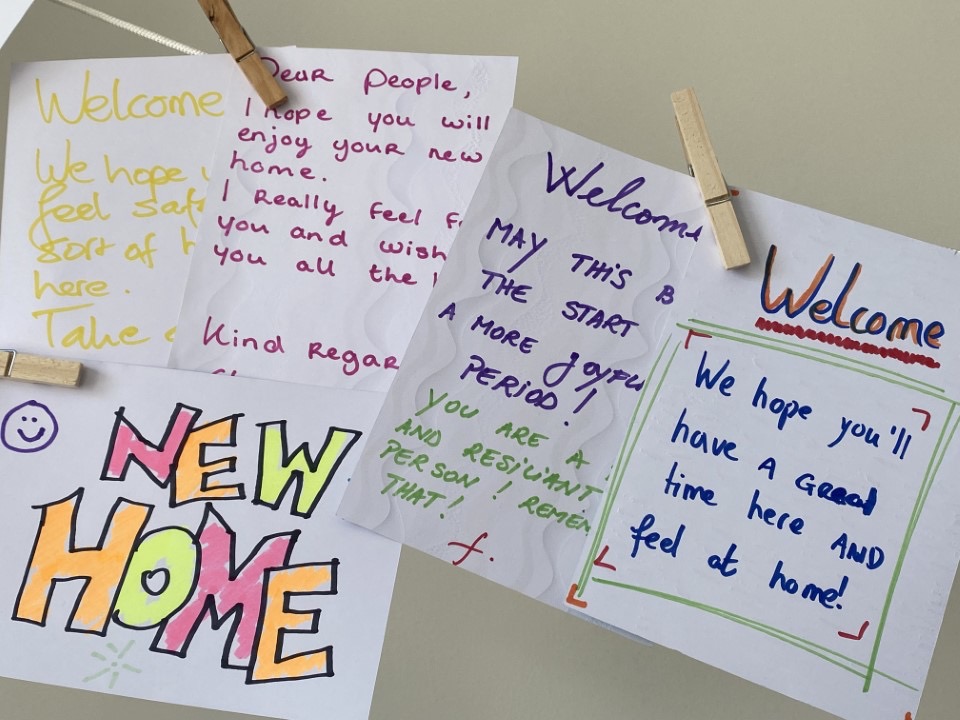 Welcome
We hope
feel safe
sort of
here.
Take
Dear people,
I hope you will
enjoy your new
home.
I Really feel
you and wish
you all the
Kind Regar
Welcome
MAY THIS B
THE START
A MORE joyfu
PERIOD!
YOU ARE A
AND RESILIANT
PERSON! REMEM
THAT!
f.
Welcome
We hope you'll
have A GReat
time here AND
feel at home!
NEW
HOME